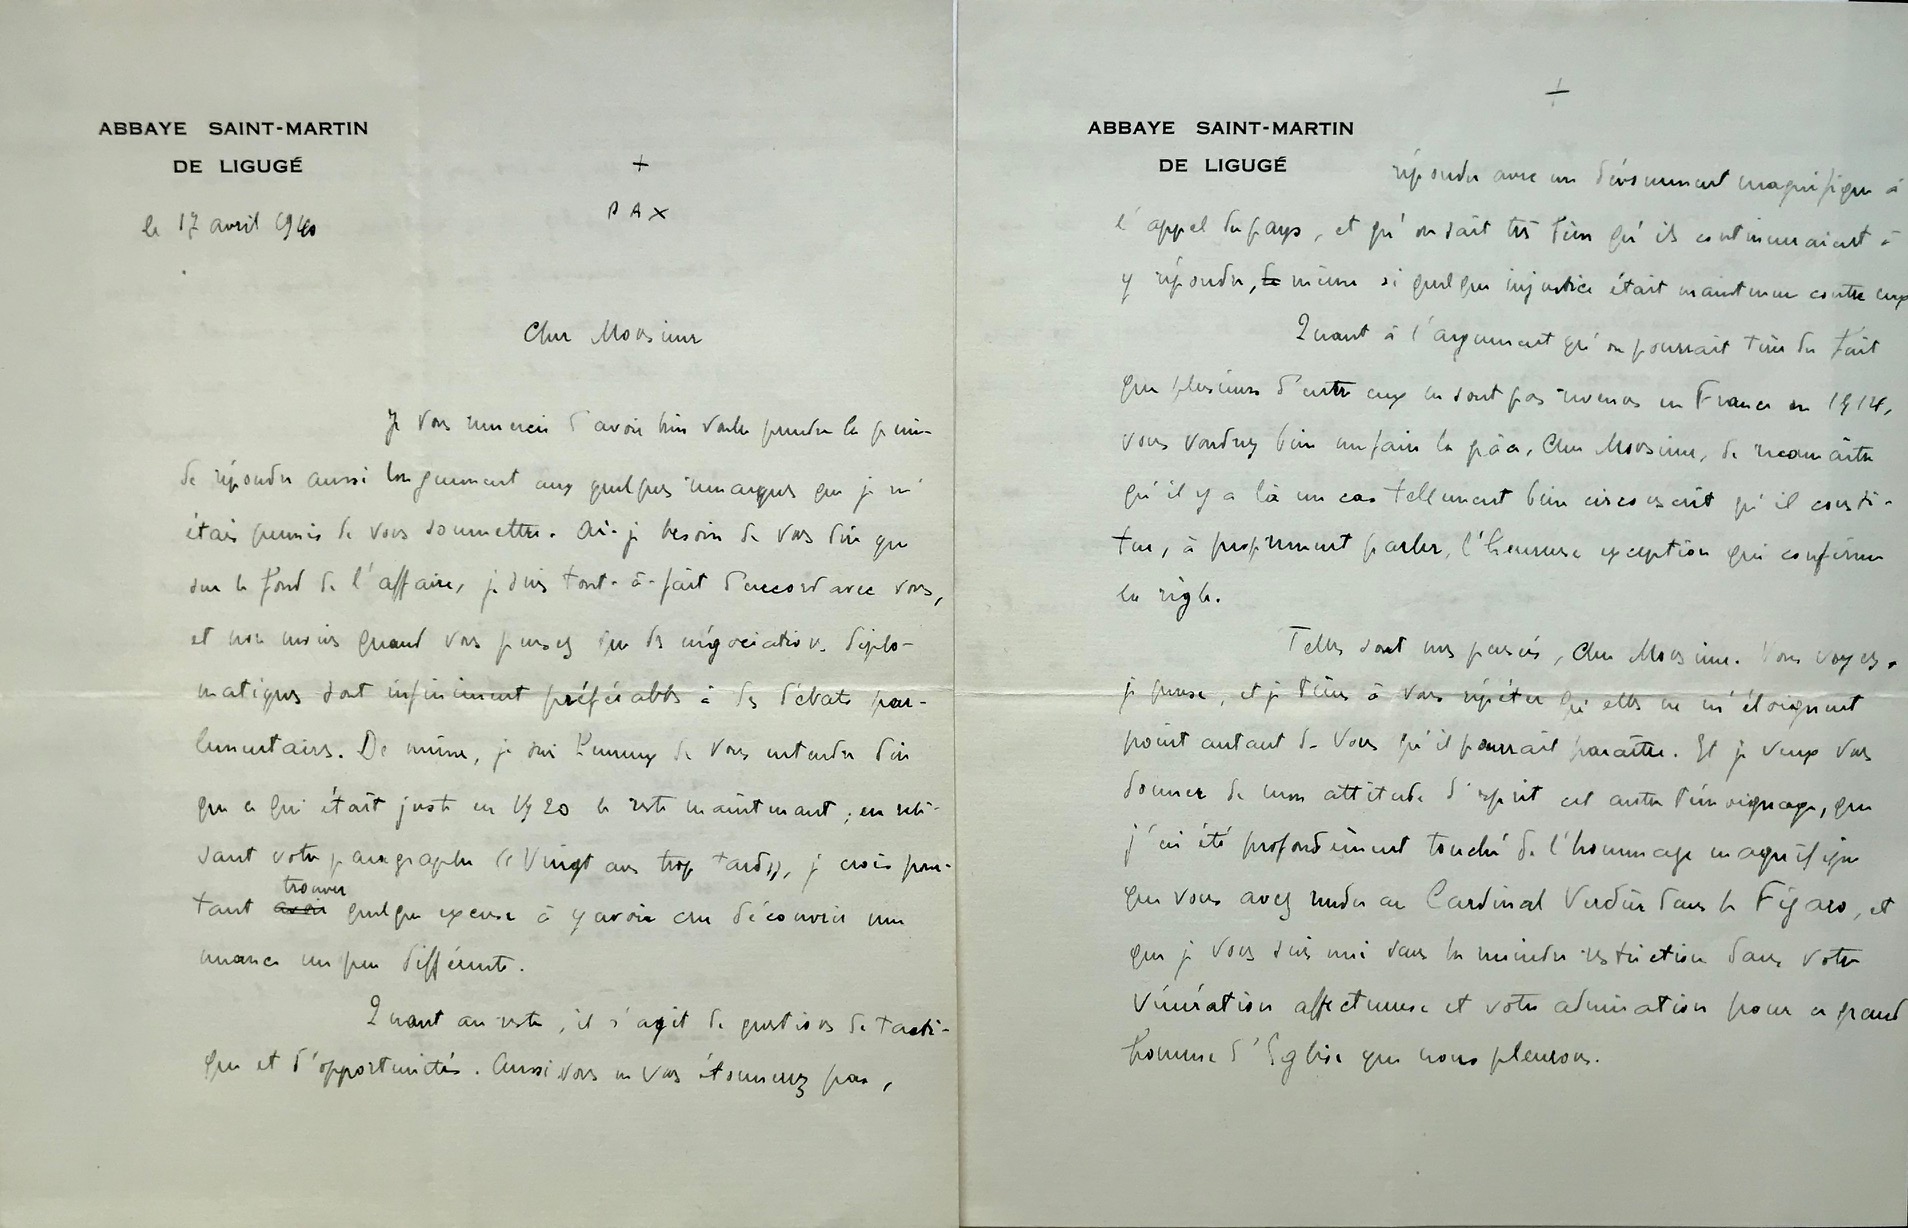 ABBAYE SAINT-MARTIN
DE LIGUGÉ
+
PAX
le 17 avril 1940
Cher Monsieur
Je vous remercie d'avoir bien voulu prendre la peine
de répondre aussi longuement aux quelques remarques que je m'
étais permis de vous soumettre. Ai-je besoin de vous dire que
sur le fond de l'affaire, je suis tout-à-fait d'accord avec vous,
et non moins quand vous pensez que des négociations diplo-
matiques sont infiniment préférables à des débats par-
lementaires. De même, je suis heureux de vous entendre dire
que ce qui était juste en 1920 le reste maintenant ; en reli-
sant votre paragraphe "Vingt ans trop tard", je crois pour-
tant avoir trouver quelque excuse à y avoir cru découvrir une
nuance un peu différente.
Quant au reste, il s'agit de questions de tacti-
que et d'opportunités. Aussi vous ne vous étonnerez pas,
+
ABBAYE SAINT-MARTIN
DE LIGUGÉ
répondu avec un dévouement magnifique à
l'appel du pays, et qu'on sait très bien qu'ils continueraient à
y répondre, même si quelque injustice était maintenue contre eux
Quant à l'argument qu'on pourrait tirer du fait
que plusieurs d'entre eux ne sont pas revenus en France en 1914,
vous voudrez bien me faire la grâce, Cher Monsieur, de reconnaître
qu'il y a là un cas tellement bien circonscrit qu'il consti-
tue, à proprement parler, l'heureuse exception qui confirme
la règle.
Telles sont mes pensées, Cher Monsieur. Vous voyez,
je pense, et je tiens à vous répéter qu'elles ne m'éloignent
point autant de vous qu'il pourrait paraître. Et je veux vous
donner de mon attitude d'esprit cet autre témoignage, que
j'ai été profondément touché de l'hommage magnifique
que vous avez rendu au Cardinal Verdier dans le Figaro, et
que je vous suis uni sans la moindre restriction dans votre
vénération affectueuse et votre admiration pour ce grand
homme d'Eglise que nous pleurons.